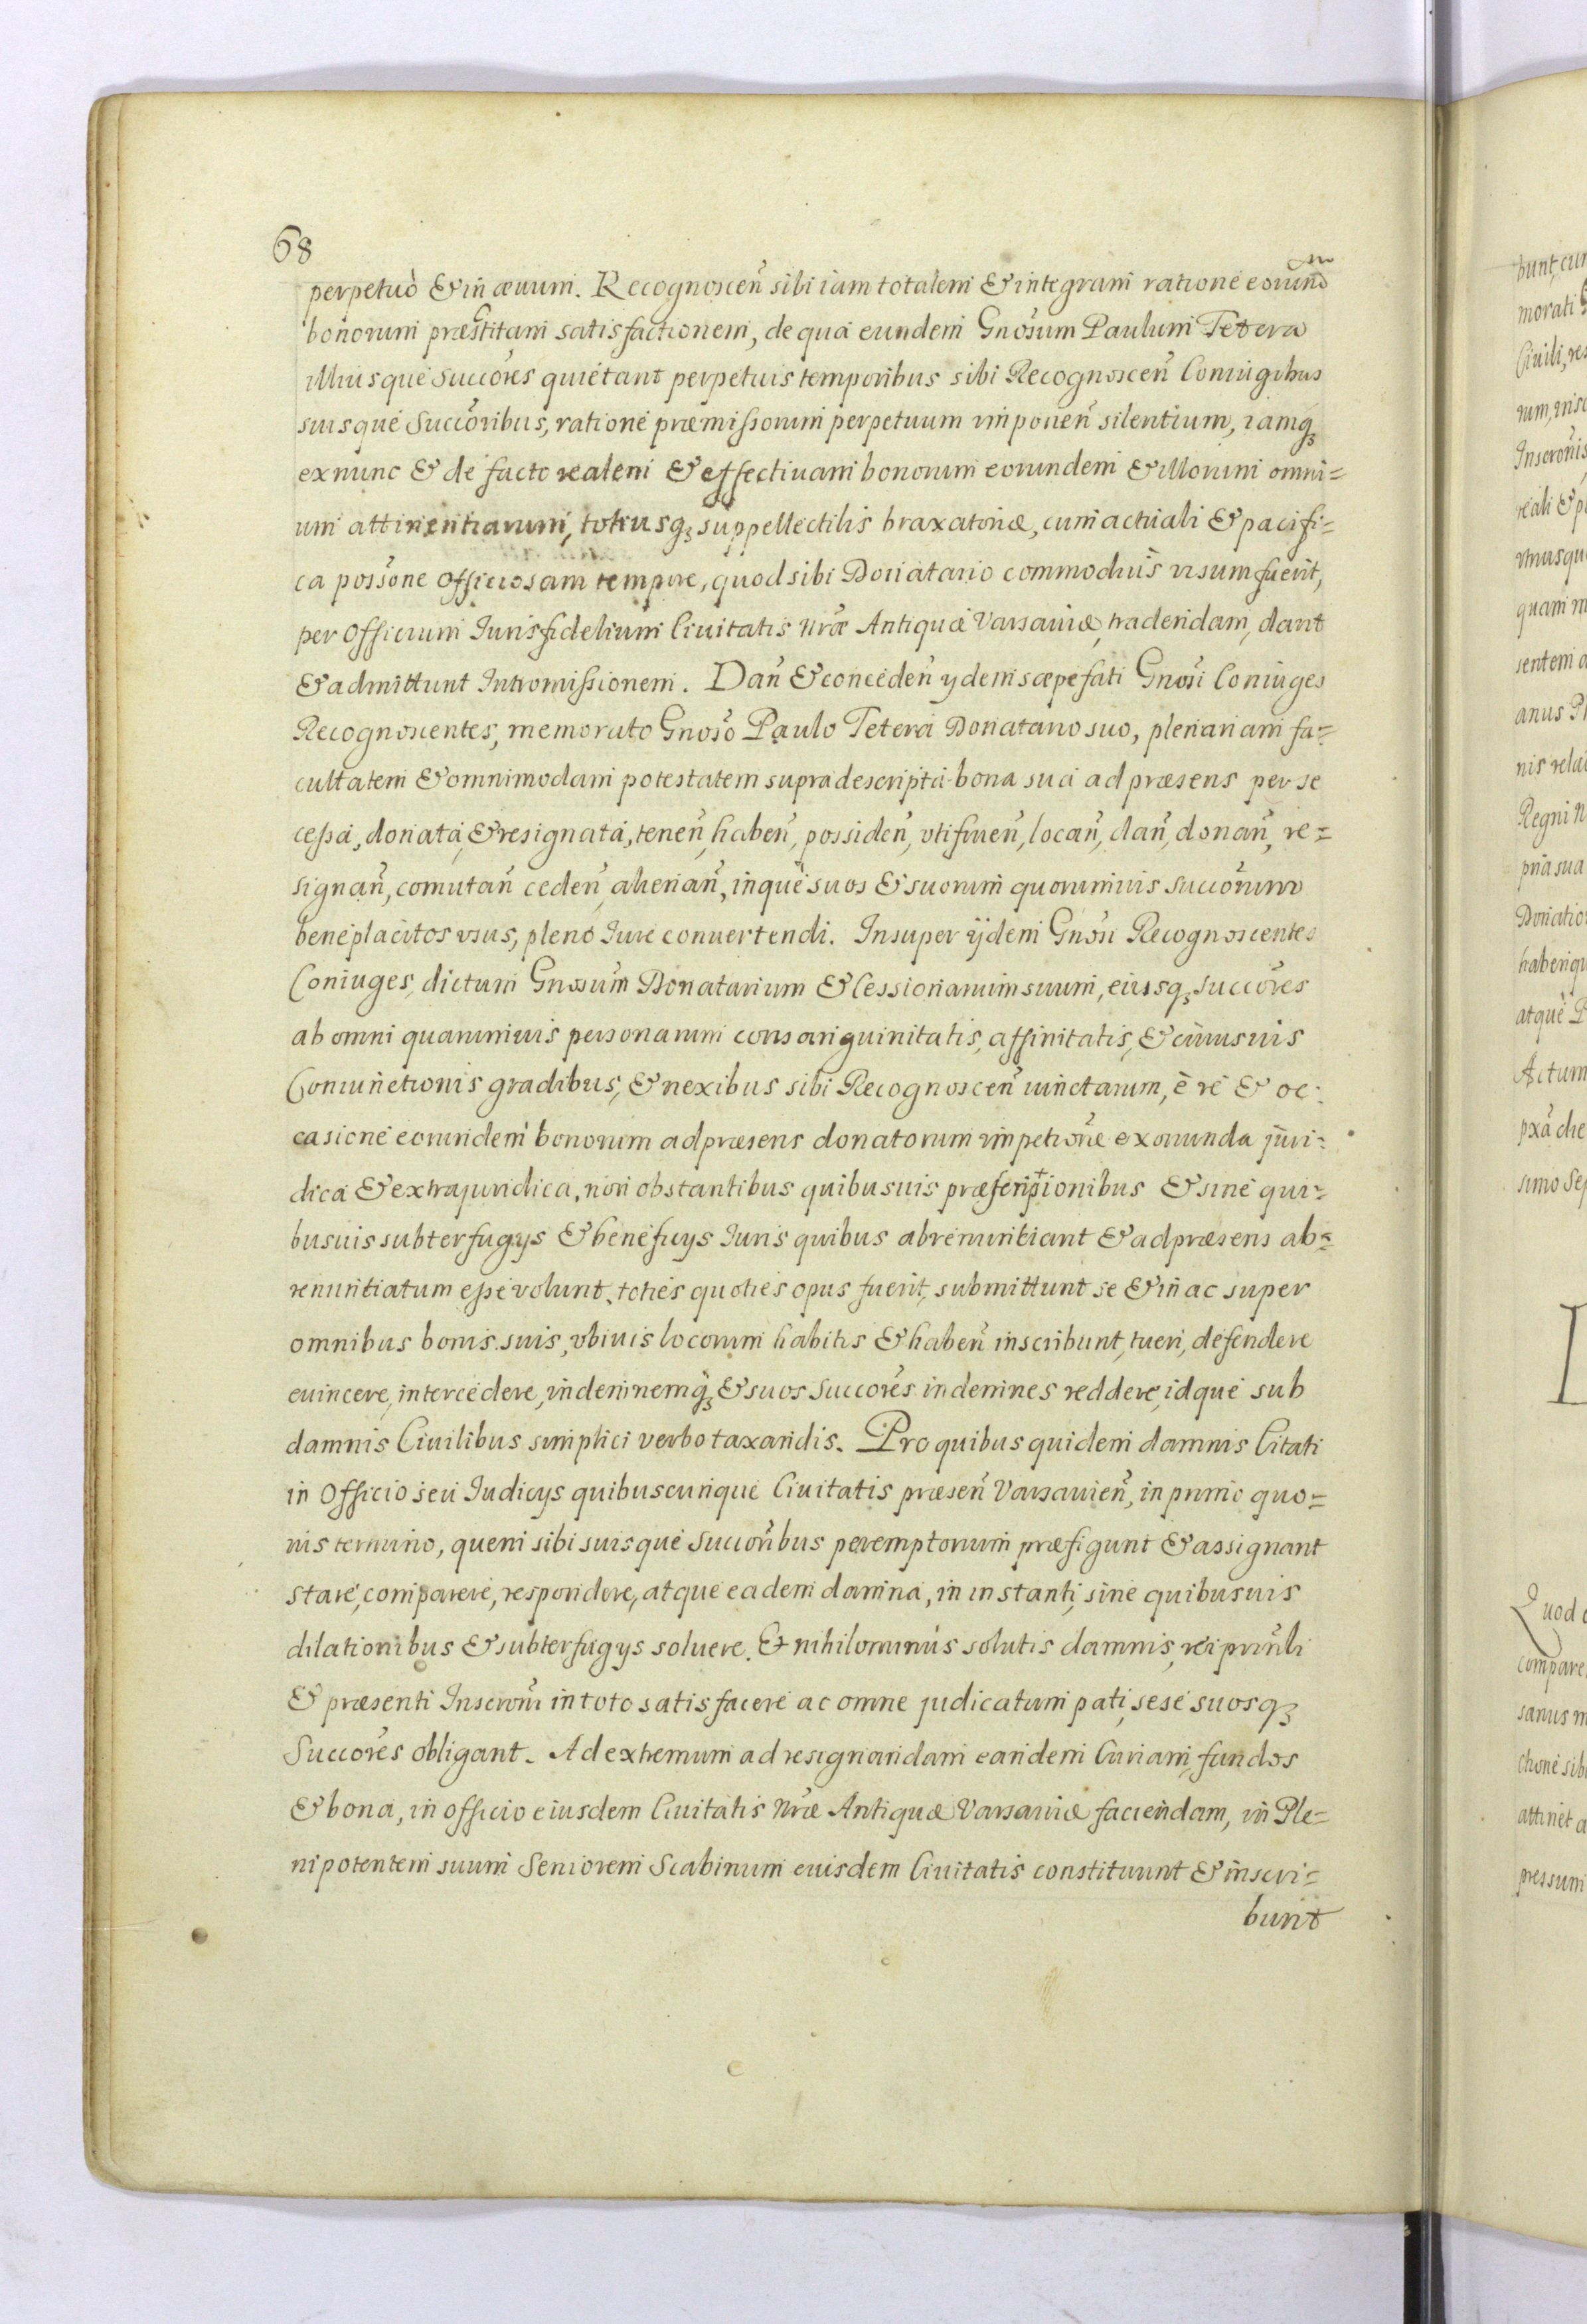 68
perpetuò & in æuum. Recognosceñ sibi iam totalem & integram ratione eorund em
bonorum præstitam satisfactionem, de qua eundem Gnosum Paulum Tetera
illiusque Succores quietant perpetuis temporibus sibi Recognosceñ Coniugibus
suisque Succoribus, ratione præmissorum perpetuum imponeñ silentium, iamq;
ex nunc & de facto realem & effectiuam bonorum eorundem & illorum omni=
um attinentiarum, totiusq; suppellectilis braxatoriæ, cum actuali & pacifi=
ca possone officiosam tempore, quod sibi Donatario commodius visum fuerit,
per Officium Juris fidelium Ciuitatis nræ Antiquæ Varsauiæ, tradendam, dant
& admittunt Intromissionem. Dañ & concedeñ ydem sæpefati Gnosi Coniuges
Recognoscentes, memorato Gnoso Paulo Tetera Donatario suo, plenariam fa=
cultatem & omnimodam potestatem supra descripta bona sua ad præsens per se
cessa, donata, & resignata, teneñ, habeñ, possideñ, vtifrueñ, locañ, dañ, donañ, re=
signañ, comutañ cedeñ, alienañ, inque suos & suorum quorumuis Succorum
beneplacitos vsus, pleno Jure conuertendi. Insuper ijdem Gnosi Recognoscentes
Coniuges, dictum Gnosum Donatarium & Cessionarium suum, eiusq; Succores
ab omni quarumuis personarum consanguinitatis, affinitatis, & cuiusuis
Coniunctionis gradibus, & nexibus sibi Recognosceñ iunctarum, è re & oc=
casione eorundem bonorum ad præsens donatorum impetitione exoriunda juri=
dica & extrajuridica, non obstantibus quibusuis præscriptionibus & sine qui=
busuis subterfugys & beneficys Juris quibus abrenuntiant & ad præsens ab=
renuntiatum esse volunt, toties quoties opus fuerit, submittunt se & in ac super
omnibus bonis suis, vbiuis locorum habitis & habeñ inscribunt, tueri, defendere
euincere, intercedere, indemnemq; & suos Succores indemnes reddere, idque sub
damnis Ciuilibus simplici verbo taxandis. Pro quibus quidem damnis Citati
in Officio seu Judicys quibuscunque Ciuitatis præseñ Varsauieñ, in primo quo=
uis termino, quem sibi suisque Succoribus peremptorium præfigunt & assignant
stare, comparere, respondere, atque eadem damna, in instanti, sine quibusuis
dilationibus & subterfugys soluere. Et nihilominus solutis damnis, rei prinłi
& præsenti Inscroni in toto satisfacere ac omne judicatum pati, sese suosq;
Succores obligant. Ad extremum ad resignandam eandem Curiam, fundos
& bona, in officio eiusdem Ciuitatis nræ Antiquæ Varsauiæ faciendam, in Ple=
nipotentem suum Seniorem Scabinum euisdem Ciuitatis constituunt & inscri=
bunt